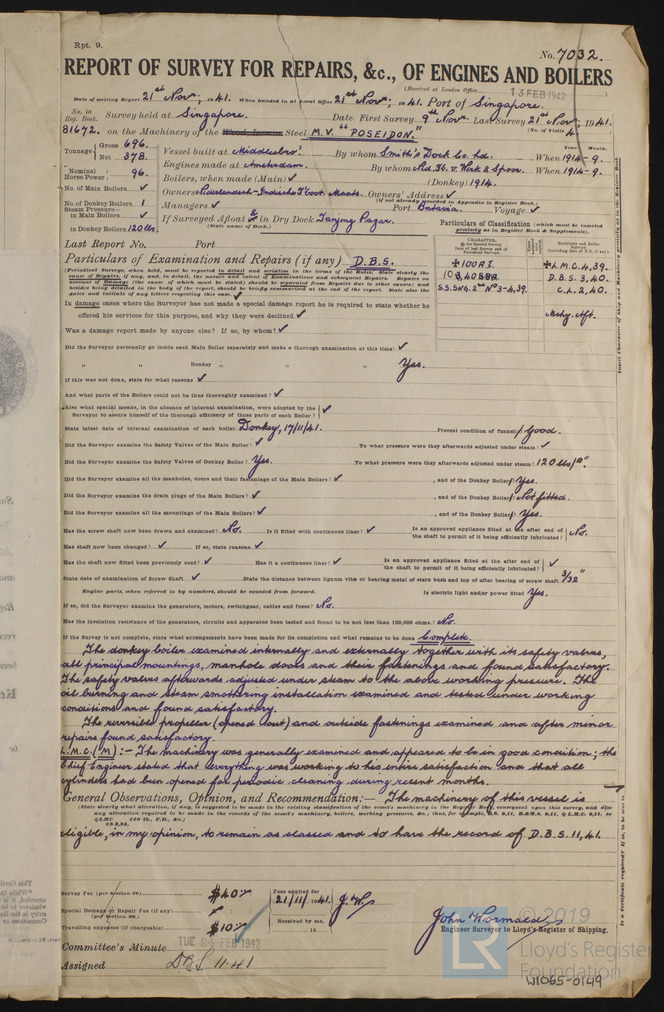 Rpt. 9.
No. 7032.
REPORT OF SURVEY FOR REPAIRS, &c., OF ENGINES AND BOILERS
(Received at London Office 13 FEB 1942
Date of writing Report 21st Nov; 1941. When handed in at Local Office 21st Nov; 1941. Port of Singapore.
No. in Reg. Book. Survey held at Singapore. Date, First Survey 9th Nov. Last Survey 21st Nov; 1941.
(No. of Visits 4
81672. on the Machinery of the Wood, Iron or Steel M.V. "POSEIDON."
Tonnage Gross 696.
Net 378.
Vessel built at Middlesbro! By whom Smith's Dock Co. Ld. When 1914-9.
Engines made at Amsterdam. By whom When 1914-9.
Nominal Horse Power 96. Boilers, when made (Main) ✓ (Donkey) 1914.
No. of Main Boilers ✓ Owners Owners' Address ✓
(if not already recorded in Appendix to Register Book.)
No. of Donkey Boilers 1 Managers ✓ Port Batavia. Voyage ✓
Steam Pressure in Main Boilers ✓
in Donkey Boilers 120 lbs If Surveyed Afloat & in Dry Dock Tanjong Pagar.
(State name of Dock.)
Particulars of Classification (which must be inserted precisely as in Register Book & Supplements).
Last Report No. Port
Particulars of Examination and Repairs (if any) D.B.S.
✠100A1.
S.S.SNG. 2nd No3-4,39.
✠L.M.C. 4,39.
D.B.S. 3,40.
C.L. 2,40.
Mchy. Aft.
In damage cases where the Surveyor has not made a special damage report he is required to state whether he
offered his services for this purpose, and why they were declined ✓
Was a damage report made by anyone else? If so, by whom? ✓
Did the Surveyor personally go inside each Main Boiler separately and make a thorough examination at this time? ✓
" " Donkey " " " " Yes.
If this was not done, state for what reasons ✓
And what parts of the Boilers could not be thus thoroughly examined? ✓
Also what special means, in the absence of internal examination, were adopted by the Surveyor to assure himself of the thorough efficiency of those parts of each Boiler? ✓
State latest date of internal examination of each boiler Donkey, 17/11/41. Present condition of funnel/ Good.
Did the Surveyor examine the Safety Valves of the Main Boiler? ✓ To what pressure were they afterwards adjusted under steam? ✓
Did the Surveyor examine the Safety Valves of Donkey Boiler? Yes. To what pressure were they afterwards adjusted under steam? 120 lbs/□".
Did the Surveyor examine all the manholes, doors and their fastenings of the Main Boilers? ✓, and of the Donkey Boiler? Yes.
Did the Surveyor examine the drain plugs of the Main Boilers? ✓, and of the Donkey Boiler? Not fitted.
Did the Surveyor examine all the mountings of the Main Boilers? ✓, and of the Donkey Boiler? Yes.
Has the screw shaft now been drawn and examined? No. Is it fitted with continuous liner? ✓ Is an approved appliance fitted at the after end of the shaft to permit of it being efficiently lubricated? No.
Has shaft now been changed? ✓ If so, state reasons ✓
Has the shaft now fitted been previously used? ✓ Has it a continuous liner? ✓ Is an approved appliance fitted at the after end of the shaft to permit of it being efficiently lubricated? ✓
State date of examination of Screw Shaft ✓ State the distance between lignum vitæ or bearing metal of stern bush and top of after bearing of screw shaft 3/32"
Engine parts, when referred to by numbers, should be counted from forward. Is electric light and/or power fitted Yes.
If so, did the Surveyor examine the generators, motors, switchgear, cables and fuses? No.
Has the insulation resistance of the generators, circuits and apparatus been tested and found to be not less than 100,000 ohms.? No.
If the Survey is not complete, state what arrangements have been made for its completion and what remains to be done Complete.
The donkey boiler examined internally and externally together with its safety valves,
all principal mountings, manhole doors and their fastenings and found satisfactory.
The safety valves afterwards adjusted under steam to the above working pressure. The
oil burning and steam smothering installation examined and tested under working
conditions and found satisfactory.
The reversible propeller (opened out) and outside fastenings examined and after minor
repairs found satisfactory.
L.M.C.(M):- The machinery was generally examined and appeared to be in good condition; the
Chief Engineer stated that everything was working to his entire satisfaction and that all
cylinders had been opened for periodic cleaning during recent months.
General Observations, Opinion, and Recommendation:— The machinery of this vessel is
eligible, in my opinion, to remain as classed and to have the record of D.B.S. 11,41.
Survey Fee (per Section 29) $40.
Fees applied for 21/11/1941. J.W.
Special Damage or Repair Fee (if any) (per Section 29.)
Travelling expenses (if chargeable) $10.
Received by me, 19
John Wormald
Engineer Surveyor to Lloyd's Register of Shipping.
Committee's Minute TUE 24 FEB 1942
Assigned DBS 11-41
© 2019
LR
Lloyd's Register
Foundation
W1065-0149